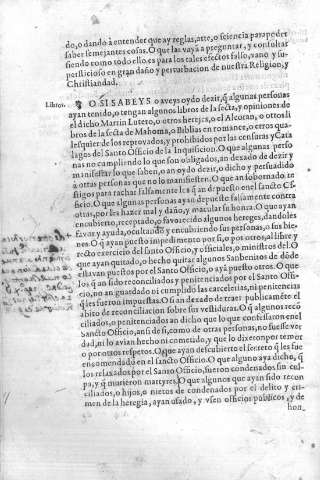 do, o dando à entender que ay reglas, arte, o sciencia para poder
saber semejantes cosas. O que las vayã a preguntar, y consultar
siendo como todo ello es para los tales efectos falso, vano y su-
persticioso en gran daño y perturbacion de nuestra Religion, y
Christiandad.
Libros.
O SI SABEYS o aveys oydo dezir, q̃ algunas personas
ayan tenido, o tengan algunos libros de la secta, y opiniones de
el dicho Martin Lutero, o otros herejes, o el Alcoran, o otros li
bros de la secta de Mahoma, o Biblias en romance, o otros qua-
lesquier de los reprovados, y prohibidos por las censuras y Cata
logos del Santo Officio de la Inquisicion. O que algunas perso
nas no cumpliendo lo que son obligados, an dexado de dezir y
manifestar lo que saben, o an oydo dezir, o dicho y persuadido
à otras personas que no lo manifiesten. O que an sobornado te
stigos para tachar falsamente los q̃ an depuesto en el sancto Of-
ficio. O que algunas personas ayan depuesto falsamente contra
otras, por les hazer mal y daño, y macular su honra. O que ayan
encubierto, receptado, o favorecido algunos hereges, dandoles
favor y ayuda, ocultando y encubriendo sus personas, o sus bie-
nes. O q̃ ayan puesto impedimento por si, o por otros, al libre y
recto exercicio del santo Officio, y officiales, o ministros del. O
que ayan quitado, o hecho quitar algunos Sanbenitos de dõde
estavan puestos por el Santo Officio, o ayã puesto otros. O que
los q̃ an sido reconciliados y penitenciados por el Santo Offi-
cio, no an guardado ni cumplido las carcelerias, ni penitencias
q̃ les fueron impuestas. O si an dexado de traer publicamẽte el
abito de reconciliacion sobre sus vestiduras. O q̃ algunos recõ
ciliados, o penitenciados an dicho que lo que confessaron en el
Sancto Officio, ansi de si, como de otras personas, no fuesse ver
dad, ni lo avian hecho ni cometido, y que lo dixeron por temor
o por otros respetos. O que ayan descubierto el secreto q̃ les fue
encomendado en el sancto Officio. O que alguno aya dicho, q̃
los relaxados por el Santo Officio, fueron condenados sin cul-
pa, y q̃ murieron martyres. O que algunos que ayan sido recon
ciliados, o hijos, o nietos de condenados por el delito y cri-
men de la heregia, ayan usado, y vsen officios publicos, y de
hon-